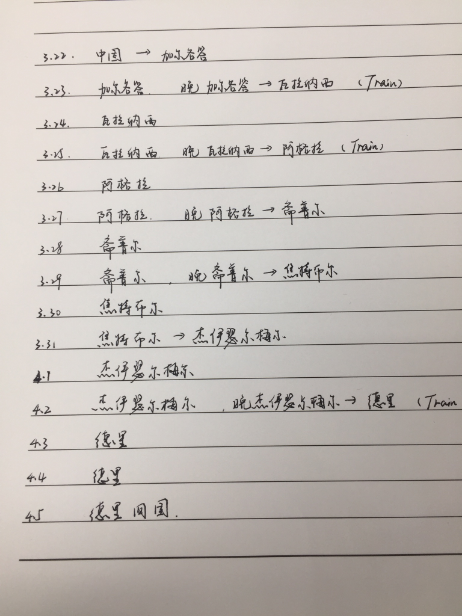 3.22. 中国 → 加尔各答
3.23. 加尔各答 晚 加尔各答 → 瓦拉纳西 (Train)
3.24. 瓦拉纳西
3.25. 瓦拉纳西 晚 瓦拉纳西 → 阿格拉 (Train)
3.26 阿格拉
3.27 阿格拉. 晚 阿格拉 → 斋普尔
3.28 斋普尔
3.29 斋普尔 , 晚 斋普尔 → 焦特布尔
3.30 焦特布尔
3.31 焦特布尔 → 杰伊瑟尔梅尔.
4.1 杰伊瑟尔梅尔
4.2 杰伊瑟尔梅尔 , 晚 杰伊瑟尔梅尔 → 德里 (Train
4.3 德里
4.4 德里
4.5 德里回国.